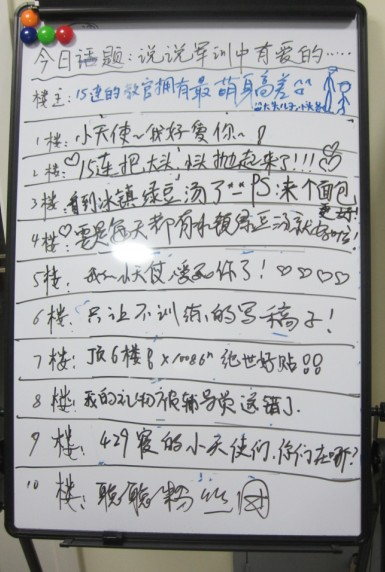 今日话题:说说军训中有爱的……
楼主:15连的教官拥有最萌身高差
1楼:小天使~我好爱你~
2楼:15连把大头,小头抛起来了!!!
3楼:看到冰镇绿豆汤了 PS来个面包更好!
4楼:要是每天都有冰镇绿豆汤就好啦!
5楼:小天使爱死你了!♡♡♡♡
6楼:只让不训练的写稿子!
7楼:顶6楼 ×10086ⁿ 绝世好贴!!
8楼:我的礼物很辅导员送错了.
9楼:429寝的小天使们,你们在哪?
10楼:聪聪粉丝团